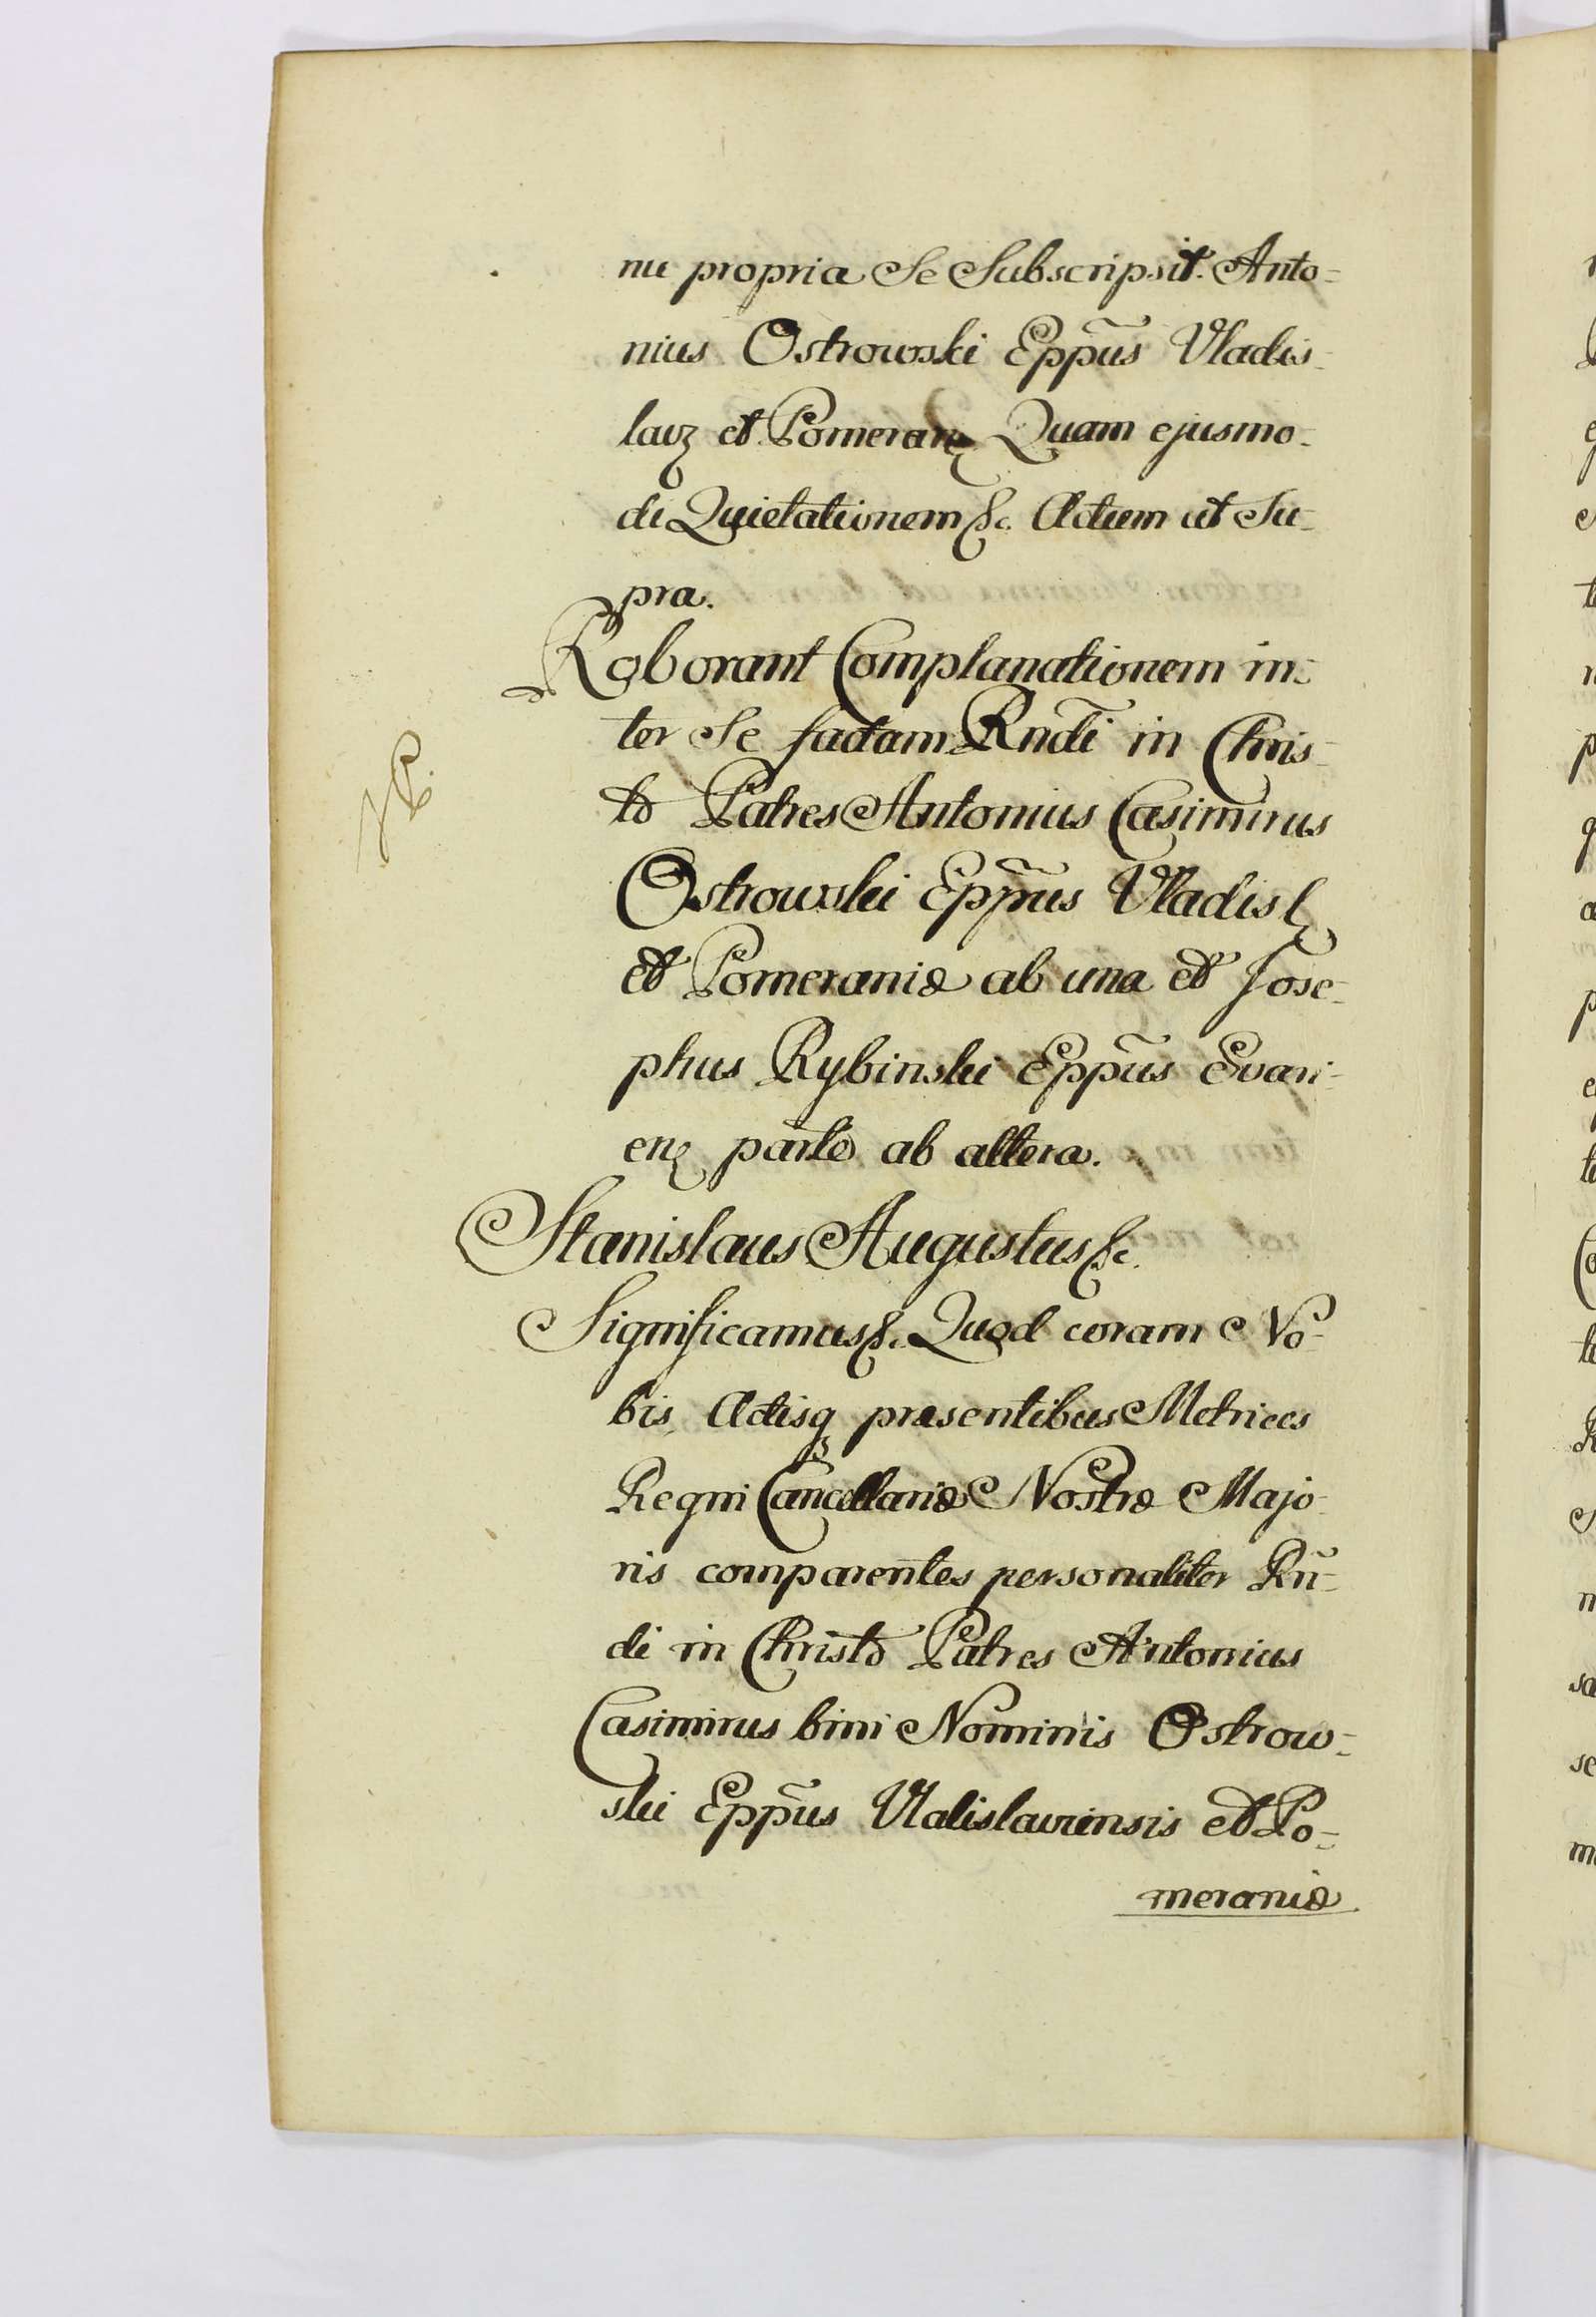 nu propria Se Subscripsit. Anto=
nius Ostrowski Eppũs Vladis-
lavz et Pomeranz Quam ejusmo-
di Quietationem &c. Actum ut Su-
pra.
Roborant Complanationem in=
ter Se factam Rndĩ in Chris-
to Patres Antonius Casimirus
Ostrowski Eppũs Vladisl
et Pomeraniæ ab una et Jose-
phus Rybinski Eppũs Evari-
enz parte ab altera.
Stanislaus Augustus &c.
Significamus &c. Quod coram No-
bis, Actisq præsentibus Metrices
Regni Cancellariæ Nostræ Majo-
ris comparentes personaliter Rñ=
di in Christo Patres Antonius
Casimirus bini Nominis Ostrow=
ski Eppũs Vlalislaviensis et Po=
meraniæ